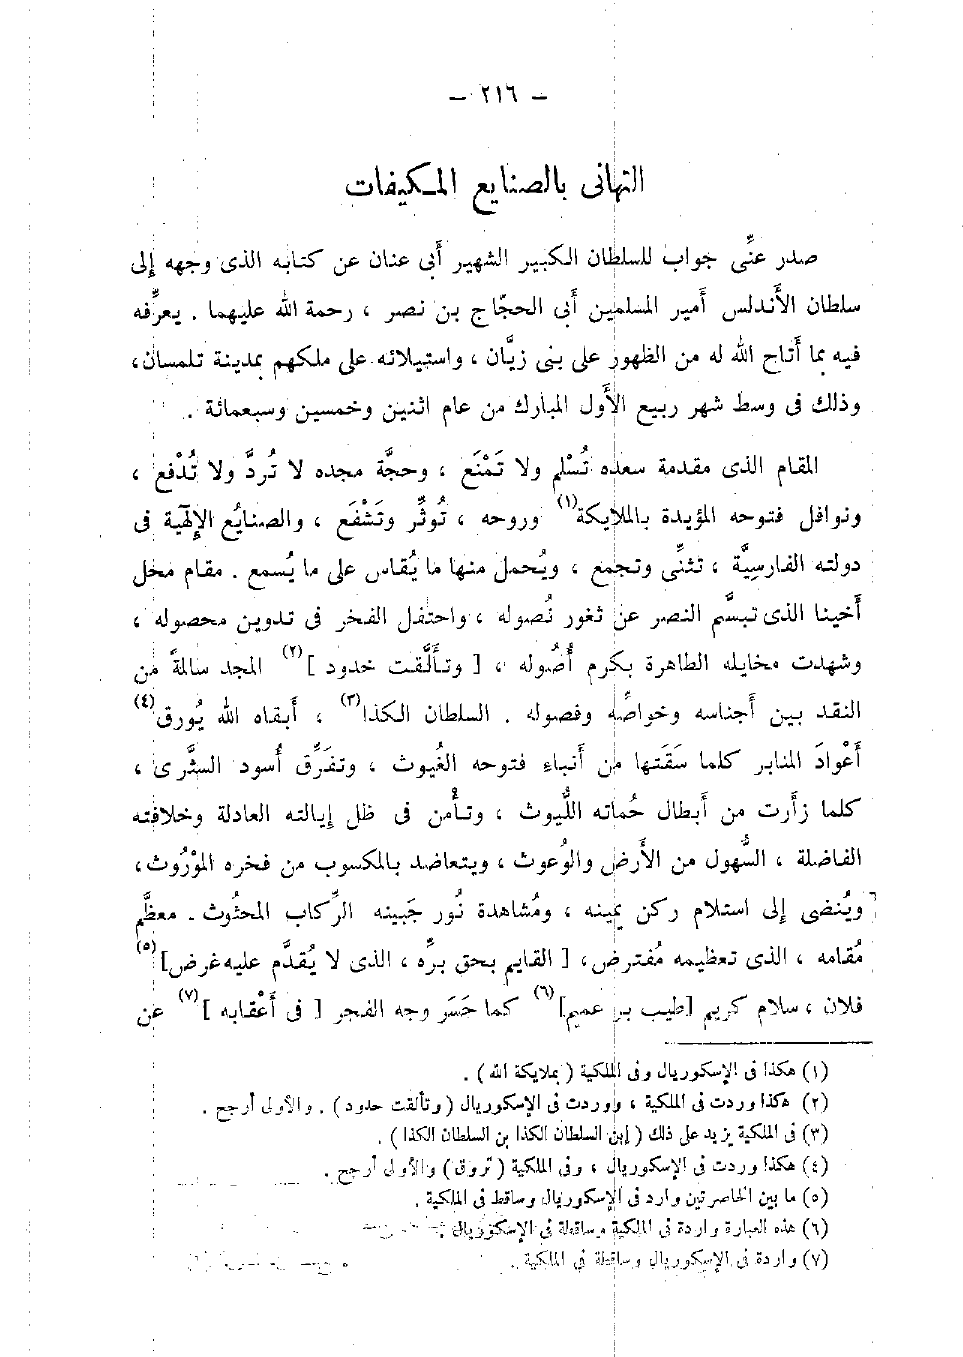 — ٢١٦ —
التهانى بالصنايع المكيفات
صدر عنِّى جواب للسلطان الكبير الشهير أبى عنان عن كتابه الذى وجهه إلى
سلطان الأندلس أمير المسلمين أبى الحجّاج بن نصر ، رحمة الله عليهما . يعرِّفه
فيه بما أَتاح الله له من الظهور على بنى زيَّان ، واستيلائه على ملكهم بمدينة تلمسان،
وذلك فى وسط شهر ربيع الأَول المبارك من عام اثنين وخمسين وسبعمائة .
المقام الذى مقدمة سعده تُسْلم ولا تَمْنَع ، وحجَّة مجده لا تُردَّ ولا تُدْفع ،
ونوافل فتوحه المؤيدة بالملايكة(١) وروحه ، تُوثِّر وتَشْفَع ، والصنايُع الإلٓهية فى
دولته الفارسِيَّة ، تثنِّى وتجمع ، ويُحمل منها ما يُقاس على ما يُسمع . مقام محل
أَخينا الذى تبسَّم النصر عن ثغور نُصوله ، واحتفل الفخر فى تدوين محصوله ،
وشهدت مخايله الطاهرة بكرم أُصُوله ، [ وتأَلَّقت خدود ](٢) المجد سالمةً من
النقد بين أَجناسه وخواصِّه وفصوله . السلطان الكذا(٣) ، أَبقاه الله يُورق(٤)
أَعْوادَ المنابر كلما سَقَتها من أَنباءِ فتوحه الغُيوث ، وتفَرَّق أُسود الشَّرى ،
كلما زأَرت من أَبطال حُماته اللُّيوث ، وتأْمن فى ظل إيالته العادلة وخلافته
الفاضلة ، السُّهول من الأَرض والوُعوث ، ويتعاضد بالمكسوب من فخره الموْرُوث،
ويُنضى إلى استلام ركن يمينه ، ومُشاهدة نُور جَبينه الرِّكاب المحثُوث . معظَّم
مُقامه ، الذى تعظيمه مُفترض، [ القايم بحق برِّه ، الذى لا يُقدَّم عليه غرض](٥)
فلان ، سلام كريم [طيب بر عميم](٦) كما حَسَر وجه الفجر [ فى أَعْقابه ](٧) عن
(١) هكذا فى الإسكوريال وفى الملكية ( بملايكة الله ) .
(٢) هكذا وردت فى الملكية ، ووردت فى الإسكوريال ( وتألقت حدود ) . والأولى أرجح .
(٣) فى الملكية يزيد على ذلك ( إبن السلطان الكذا بن السلطان الكذا ) .
(٤) هكذا وردت فى الإسكوريال ، وفى الملكية ( تروق ) والأولى أرجح .
(٥) ما بين الخاصرتين وارد فى الإسكوريال وساقط فى الملكية .
(٦) هذه العبارة واردة فى الملكية وساقطة فى الإسكوريال .
(٧) واردة فى الإسكوريال وساقطة فى الملكية .